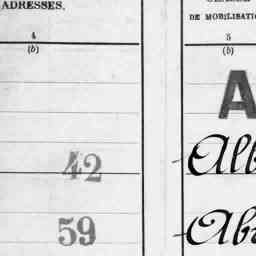 ADRESSES.
DE MOBILISATI
4
5
(b)
(b)
A
42
Alb
59